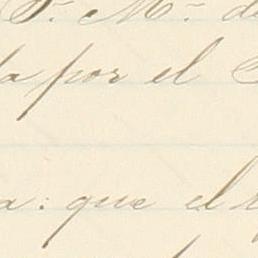 S.ᵃ M.ᵃ d
a por el
a: que el